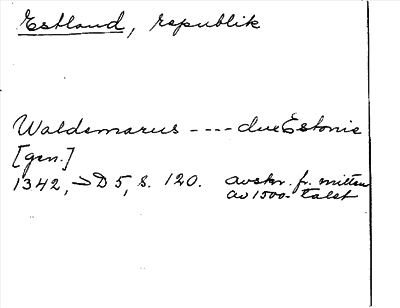 Estland, republik
Waldemarus ---- dux Estonie
[gen.]
1342, → D 5, s. 120. avskr. fr. mitten
av 1500-talet